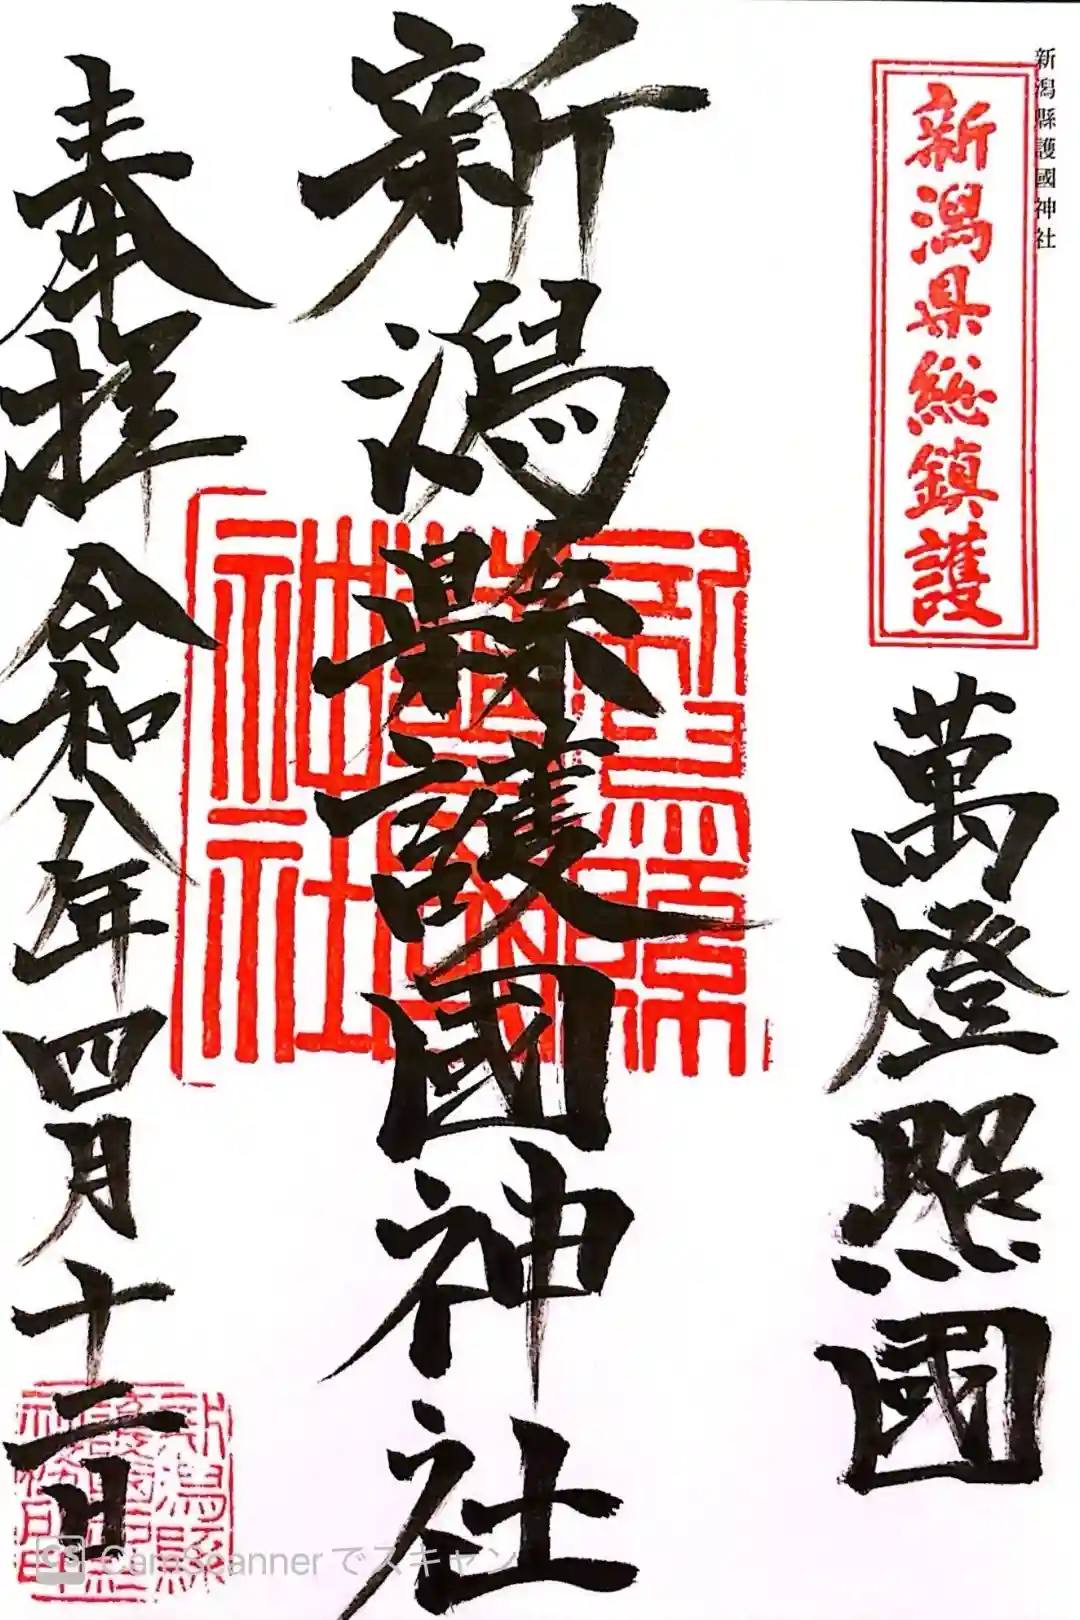 新潟縣護國神社
新潟県総鎮護
萬燈照國
新潟縣護國神社
新潟縣護國神社
奉拝 令和八年四月十二日
CamScanner でスキャン